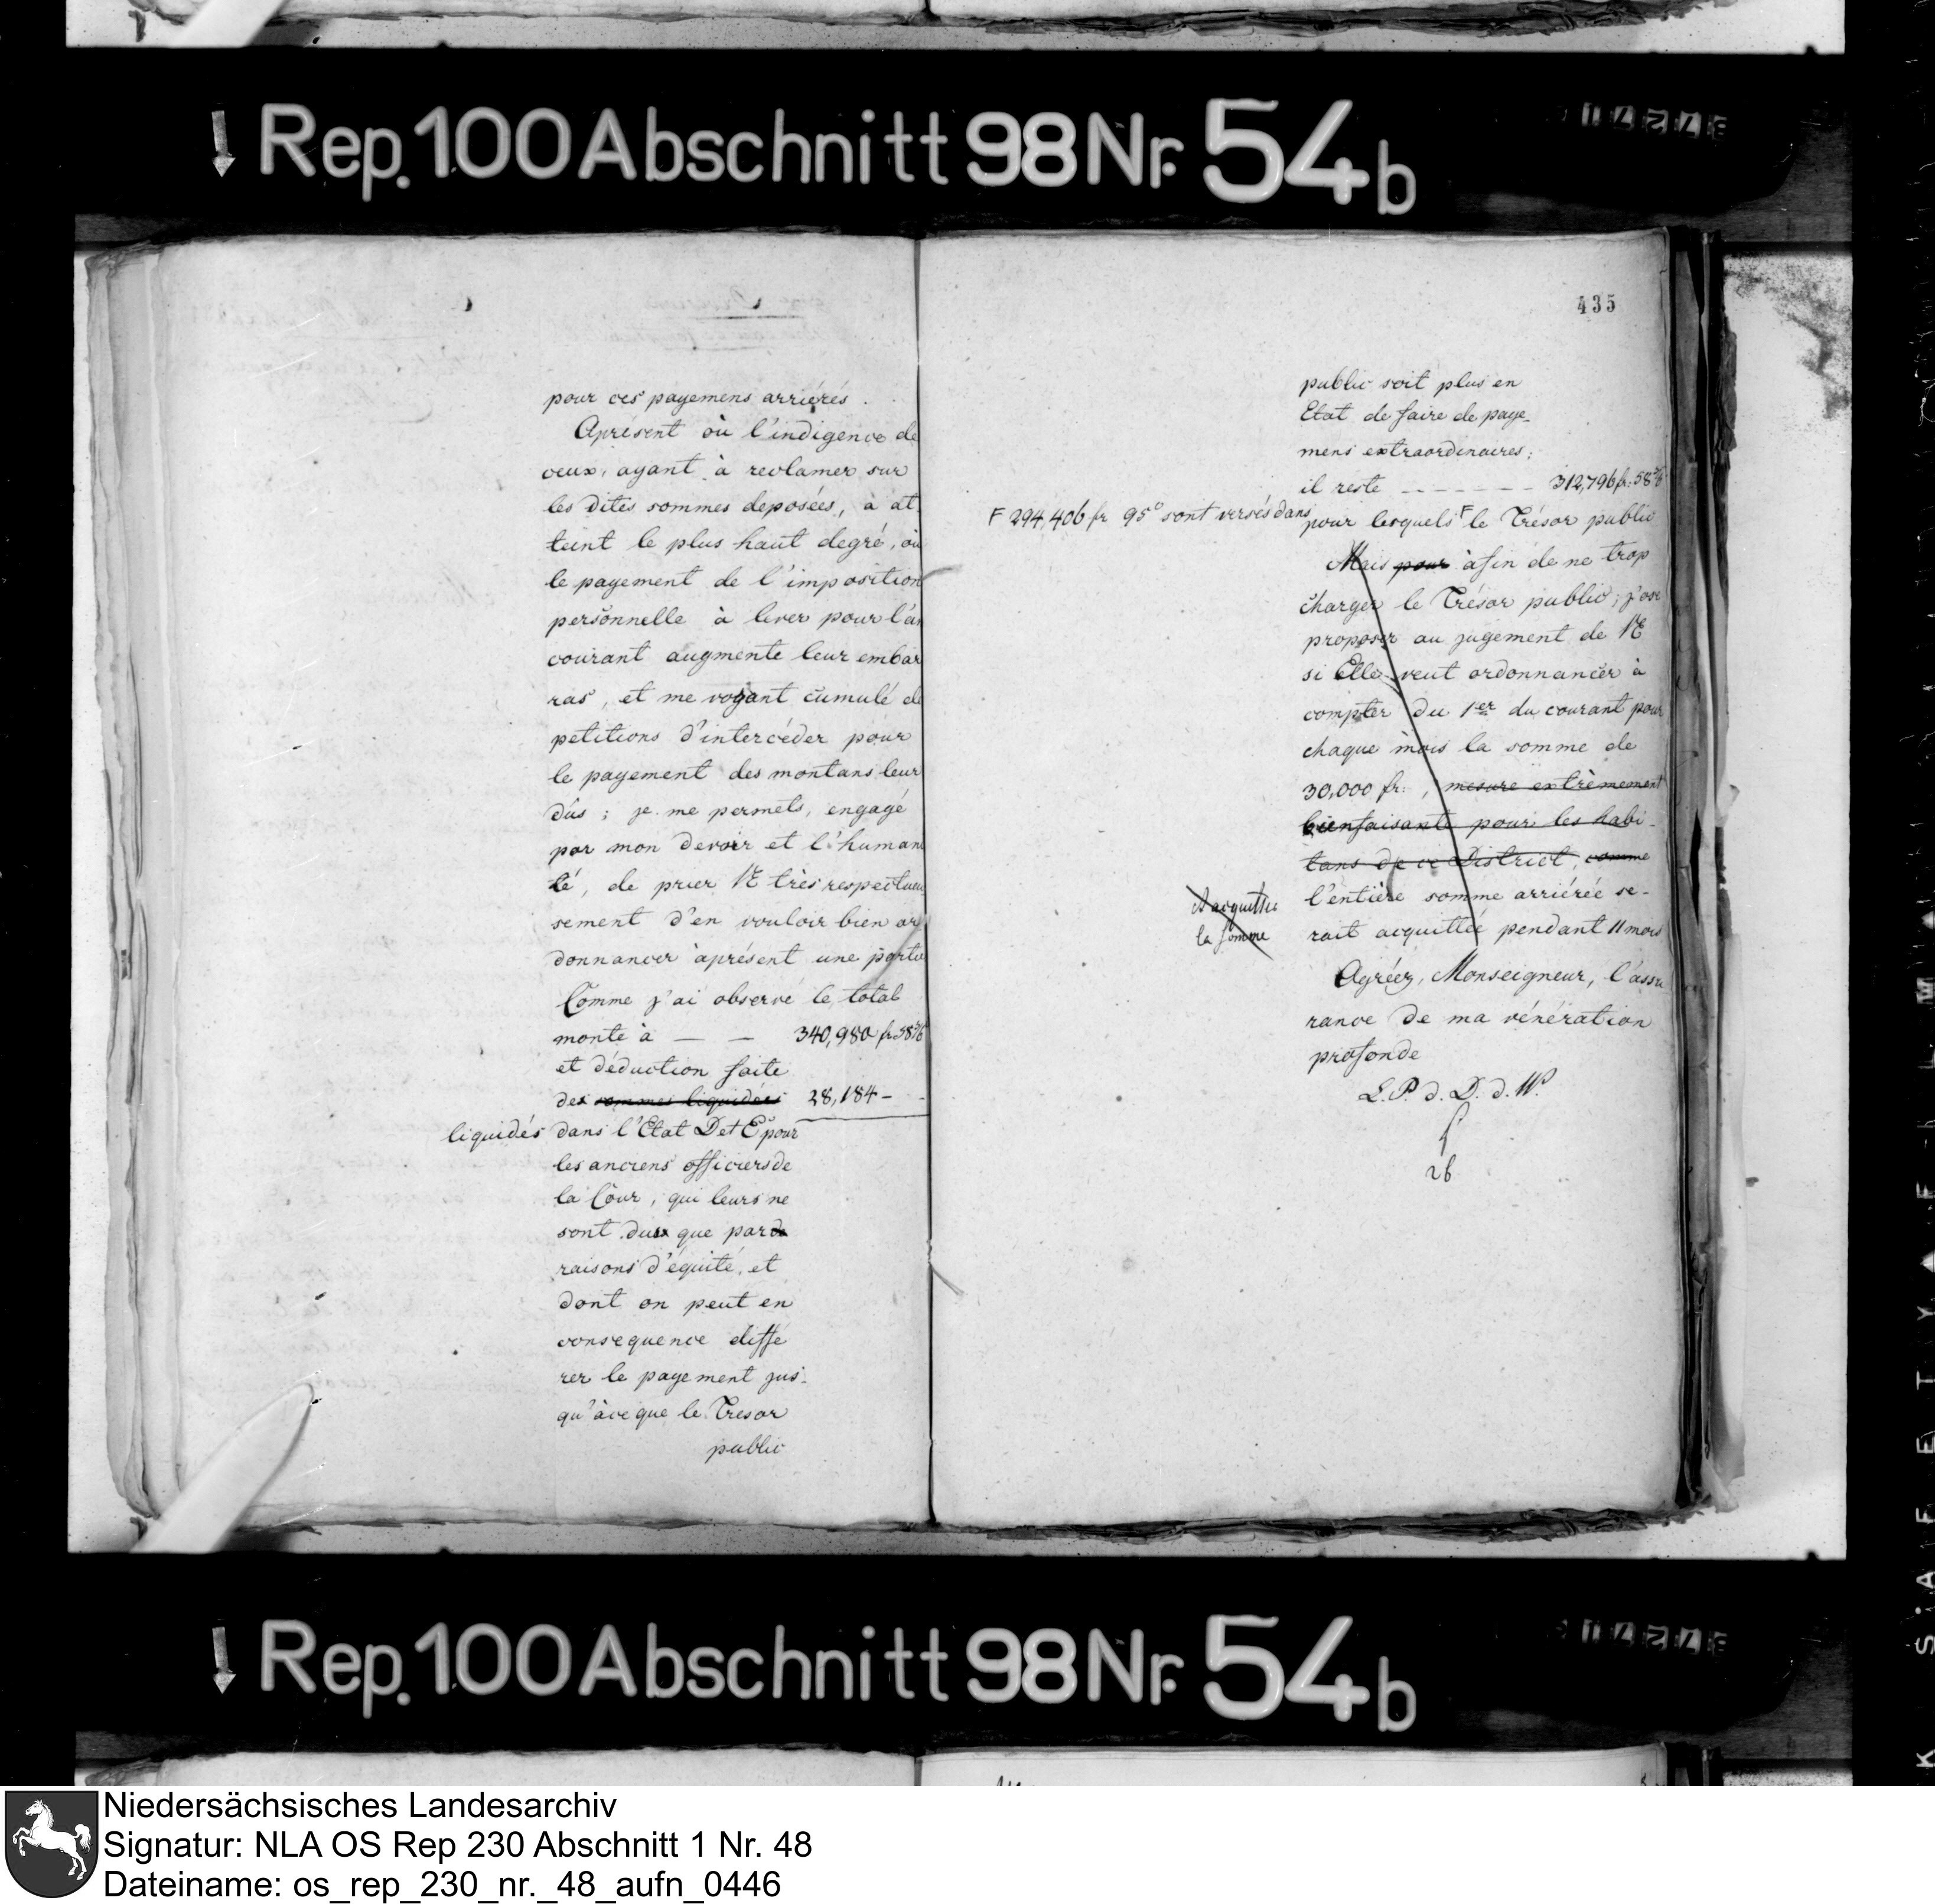 Rep. 100 Abschnitt 98 Nr. 54b
pour ces payemens arriérés.
Aprésent où l'indigence de
ceux, ayant à reclamer sur
les dites sommes deposées, a at
teint le plus haut degré, où
le payement de l'imposition
personnelle à lever pour l'an
courant augmente leur embar
ras, et me voyant cumulé de
petitions d'intercéder pour
le payement des montans leur
dûs; je me permets, engagé
par mon devoir et l'humani
té, de prier VE très respectueu
sement d'en vouloir bien or
donnancer àprésent une partie
Comme j'ai observé le total
monte à — — 340,980 fr. 58
et déduction faite
des sommes liquidées 28,184 -
liquidés dans l'Etat D et E pour
les anciens officiers de
la Cour, qui leurs ne
sont dus que par de
raisons d'équité, et
dont on peut en
consequence diffé
rer le payement jus-
qu'àce que le Tresor
public
435
public soit plus en
Etat de faire de paye-
mens extraordinaires;
il reste - - - - - - - 312,796 fr. 58
F 294,406 fr 95c sont versés dans
pour lesquels F le Trésor public
Mais pour àfin de ne trop
charger le Trésor public; j'ose
proposer au jugement de VE
si Elle veut ordonnancer à
compter du 1er du courant pour
chaque mois la somme de
30,000 fr:, mesure extrèmement
bienfaisante pour les habi-
tans de ce District, comme
acquittée
la somme
l'entière somme arriérée se-
rait acquittée pendant 11 mois
Agréez, Monseigneur, l'assu
rance de ma vénération
profonde
L. P. d. D. d. W.
26
Rep. 100 Abschnitt 98 Nr. 54b
Niedersächsisches Landesarchiv
Signatur: NLA OS Rep 230 Abschnitt 1 Nr. 48
Dateiname: os_rep_230_nr._48_aufn_0446